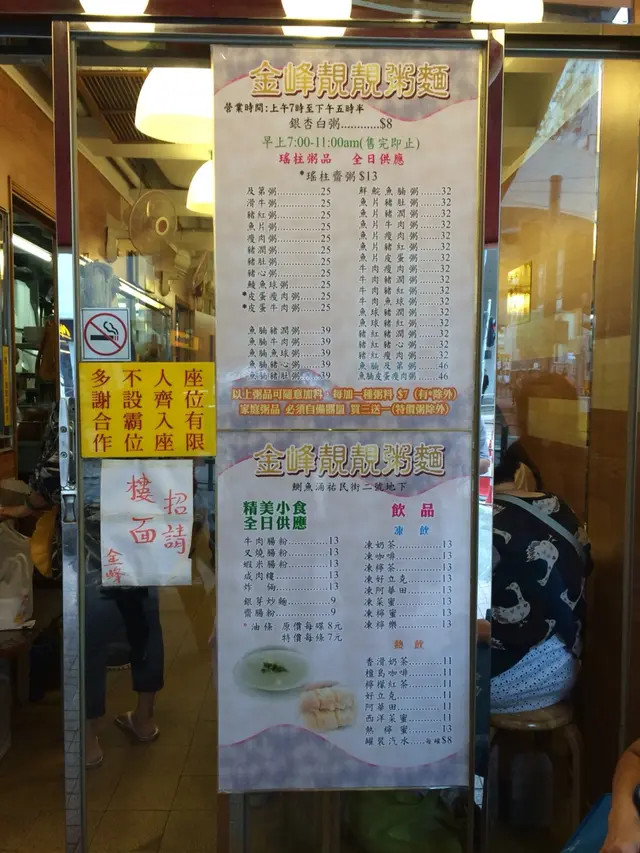 金峰靚靚粥麵
營業時間:上午7時至下午五時半
銀杏白粥............$8
早上7:00-11:00am(售完即止)
瑤柱粥品 全日供應
*瑤柱齋粥 $13
及第粥............25
滑牛粥............25
豬紅粥............25
魚片粥............25
瘦肉粥............25
豬潤粥............25
豬肚粥............25
豬心粥............25
鯪魚球粥............25
*皮蛋瘦肉粥............25
*皮蛋牛肉粥............25
魚腩豬潤粥............39
魚腩牛肉粥............39
魚腩魚球粥............39
魚腩豬心粥............39
魚腩豬肚粥............39
鮮鯇魚腩粥............32
魚片豬肚粥............32
魚片豬潤粥............32
魚片牛肉粥............32
魚片瘦肉粥............32
魚片豬紅粥............32
魚片皮蛋粥............32
牛肉瘦肉粥............32
牛肉豬潤粥............32
牛肉豬紅粥............32
牛肉魚球粥............32
魚球豬潤粥............32
魚球豬紅粥............32
豬紅豬潤粥............32
豬紅豬心粥............32
豬紅瘦肉粥............32
魚腩及第粥............46
魚腩皮蛋瘦肉粥............46
以上粥品可隨意加料 每加一種粥料 $7 (有*除外)
家庭粥品 必須自備器皿 買三送一(特價粥除外)
座位有限
人齊入座
不設霸位
多謝合作
招請
樓面
金峰
金峰靚靚粥麵
鰂魚涌祐民街二號地下
精美小食
全日供應
牛肉腸粉............13
叉燒腸粉............13
蝦米腸粉............13
咸肉糭............13
炸 㑩............13
銀芽炒麵............9
齋腸粉............9
*油條 原價每碟 8元
特價每條 7元
飲品
凍飲
凍奶茶............13
凍咖啡............13
凍檸茶............13
凍好立克............13
凍阿華田............13
凍菜蜜............13
凍檸蜜............13
凍檸樂............13
熱飲
香滑奶茶............11
檀島咖啡............11
檸檬紅茶............11
好立克............11
阿華田............11
西洋菜蜜............11
熱檸蜜............11
罐裝汽水.....每罐$8